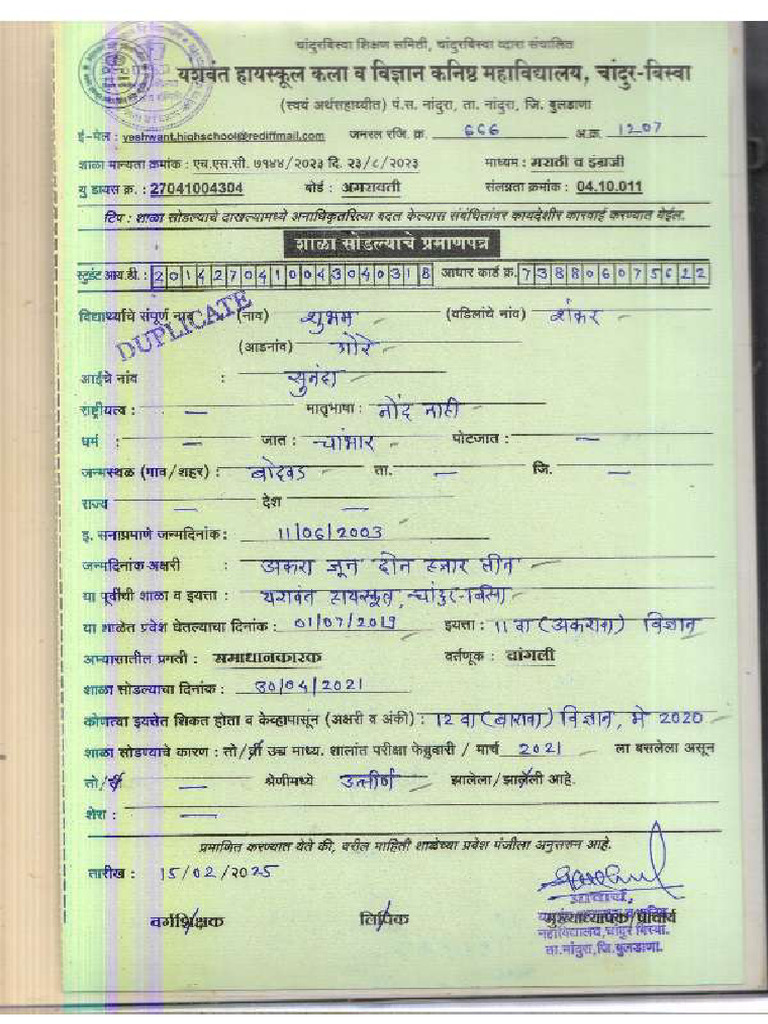 चांदुरबिस्वा शिक्षण समिती, चांदुरबिस्वा व्दारा संचालित
यशवंत हायस्कूल कला व विज्ञान कनिष्ठ महाविद्यालय, चांदुर-बिस्वा
(स्वयं अर्थसहाय्यीत) पं.स. नांदुरा, ता. नांदुरा, जि. बुलडाणा
ई-मेल : yashwant.highschool@rediffmail.com जनरल रजि. क्र. 666 अ.क्र. 1207
शाळा मान्यता क्रमांक : एच.एस.सी. ७१४४/२०२३ दि. २३/८/२०२३ माध्यम : मराठी व इंग्रजी
यु डायस क्र. : 27041004304 बोर्ड : अमरावती संलग्नता क्रमांक : 04.10.011
टिप : शाळा सोडल्याचे दाखल्यामध्ये अनाधिकृतरित्या बदल केल्यास संबंधितांवर कायदेशीर कारवाई करण्यात येईल.
शाळा सोडल्याचे प्रमाणपत्र
स्टुडंट आय.डी. : 2014270410043040318 आधार कार्ड क्र. 738806075622
विद्यार्थ्याचे संपूर्ण नाव : (नाव) शुभम (वडिलांचे नांव) शंकर
DUPLICATE
(आडनांव) गोरे
आईचे नांव : सुनंदा
राष्ट्रीयत्व : — मातृभाषा : नोंद नाही
धर्म : — जात : चांभार पोटजात : —
जन्मस्थळ (गाव/शहर) : बोदवड ता. — जि. —
राज्य — देश —
इ. सनाप्रमाणे जन्मदिनांक : 11/06/2003
जन्मदिनांक अक्षरी : अकरा जून दोन हजार तीन
या पूर्वीची शाळा व इयत्ता : यशवंत हायस्कूल, चांदुर-बिस्वा
या शाळेत प्रवेश घेतल्याचा दिनांक : 01/07/2019 इयत्ता : 11 वा (अकरावा) विज्ञान
अभ्यासातील प्रगती : समाधानकारक वर्तणूक : चांगली
शाळा सोडल्याचा दिनांक : 30/04/2021
कोणत्या इयत्तेत शिकत होता व केव्हापासून (अक्षरी व अंकी) : 12 वा (बारावा) विज्ञान, मे 2020
शाळा सोडण्याचे कारण : तो/ती उच्च माध्य. शालांत परीक्षा फेब्रुवारी / मार्च 2021 ला बसलेला असून
तो/ती — श्रेणीमध्ये उत्तीर्ण झालेला/झालेली आहे.
शेरा : —
प्रमाणित करण्यात येते की, वरील माहिती शाळेच्या प्रवेश पंजीला अनुसरून आहे.
तारीख : 15/02/2025
वर्गशिक्षक लिपिक मुख्याध्यापक/प्राचार्य
प्राचार्य,
महाविद्यालय, चांदुर बिस्वा.
ता. नांदुरा, जि. बुलडाणा.